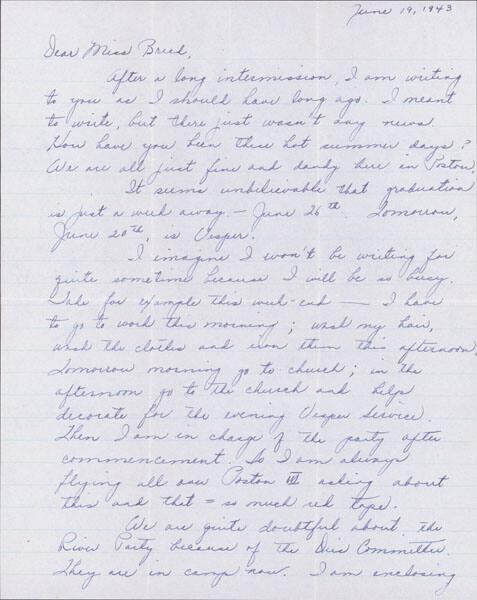 June 19, 1943
Dear Miss Breed,
After a long intermission, I am writing
to you as I should have long ago. I meant
to write, but there just wasn't any news.
How have you been these hot summer days?
We are all just fine and dandy here in Poston.
It seems unbelievable that graduation
is just a week away — June 26th. Tomorrow,
June 20th, is Vesper.
I imagine I won't be writing for
quite sometime because I will be so busy.
Take for example this week-end — I have
to go to work this morning; wash my hair,
wash the clothes and iron them this afternoon.
Tomorrow morning go to church; in the
afternoon go to the church and help
decorate for the evening Vesper Service.
Then I am in charge of the party after
commencement. So I am always
flying all over Poston III asking about
this and that = so much red tape.
We are quite doubtful about the
River Party because of the Dies Committee.
They are in camp now. I am enclosing